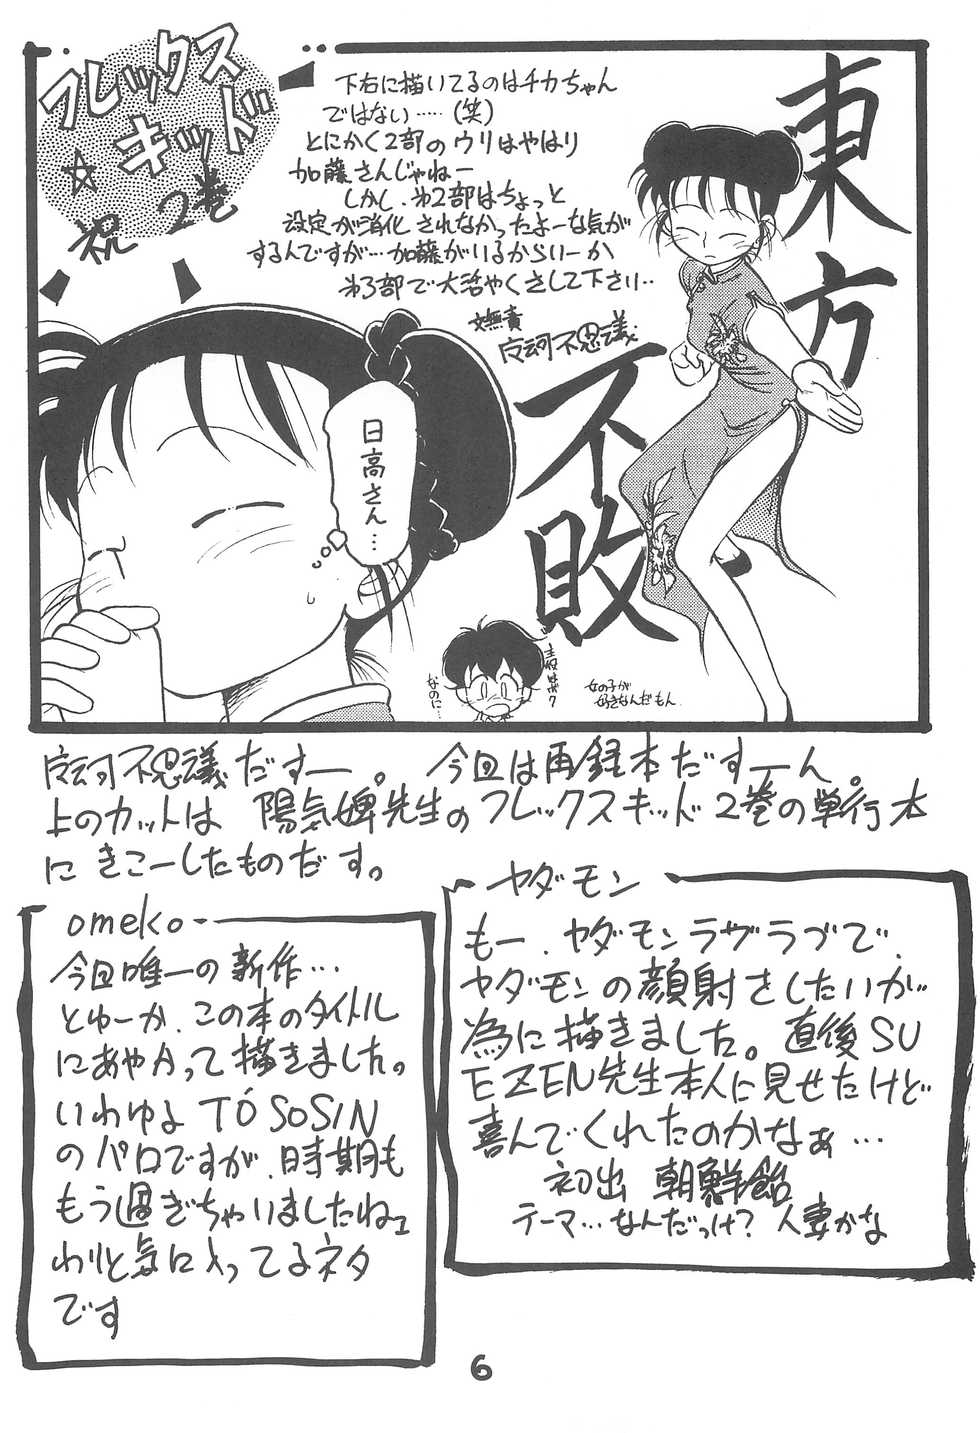 フレックス
キッド
☆
祝 2巻
下右に描いてるのはチカちゃん
ではない‥‥(笑)
とにかく2部のウリはやはり
加藤さんじゃねー
しかし、第2部はちょっと
設定が消化されなかったよーな気が
するんですが…加藤がいるからいーか
第3部で大活やくさして下さい‥
文無責
不思議
東方
不敗
日高さん…
主役はボク
なのに…
女の子が
好きなんだもん
不思議だすー。今回は再録本だすーん。
上のカットは 陽気婢先生のフレックスキッド2巻の単行本
にきこーしたものだす。
omeko
今回唯一の新作…
とゆーか、この本のタイトル
にあやかって描きました。
いわゆる TÓSOSIN
のパロですが、時期も
もう過ぎちゃいましたねェ
わりと気に入ってるネタ
です
ヤダモン
もー、ヤダモンラヴラブで、
ヤダモンの顔射をしたいが
為に描きました。直後SU
EZEN先生本人に見せたけど
喜んでくれたのかなぁ…
初出 朝鮮飴
テーマ…なんだっけ? 人妻かな
6